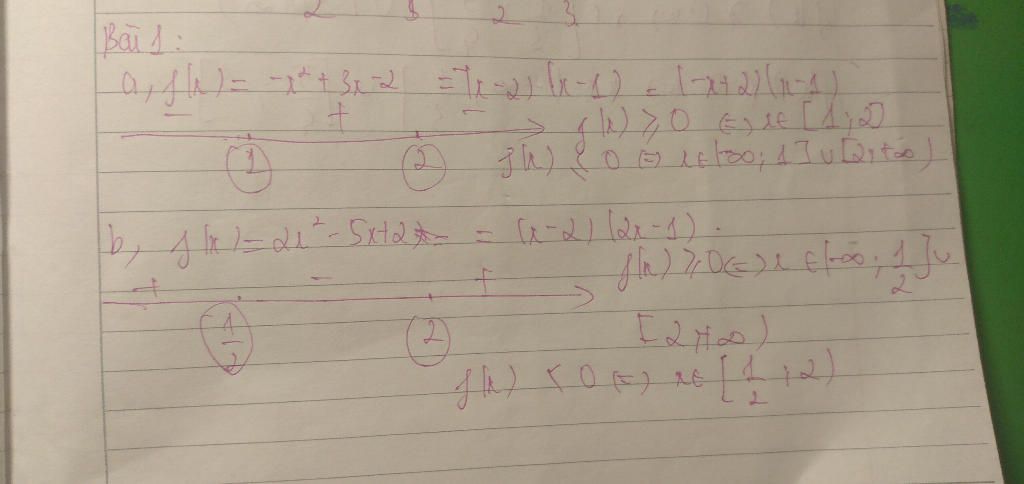 2 3 2 3
Bài 1:
a, f(x) = -x² + 3x - 2 = -(x-2)(x-1) = (-x+2)(x-1)
- + -
f(x) ≥ 0 ⇔ x ∈ [1; 2]
1 2
f(x) < 0 ⇔ x ∈ (-∞; 1] ∪ [2; +∞)
b, f(x) = 2x² - 5x + 2 = (x-2)(2x-1).
f(x) ≥ 0 ⇔ x ∈ (-∞; 1/2] ∪
+ - +
1/2 2
[2; +∞)
f(x) < 0 ⇔ x ∈ [1/2; 2)